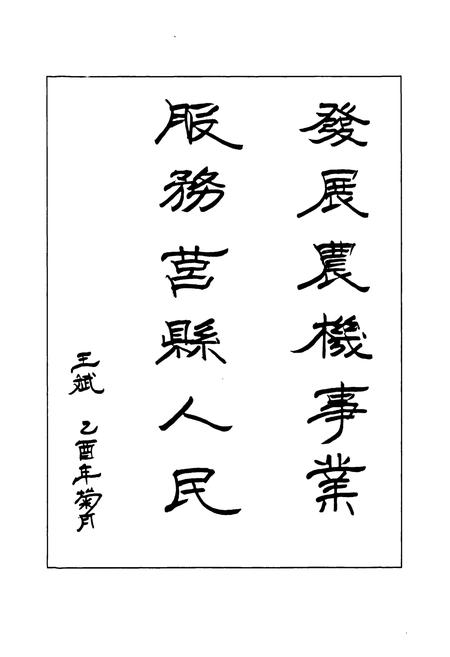 發展農機事業
服務莒縣人民
王斌 乙酉年菊月